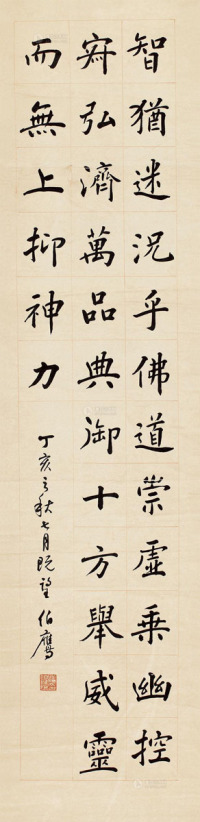 智猶迷況乎佛道崇虛乗幽控
寂弘濟萬品典御十方舉威靈
而無上抑神力
丁亥之秋七月既望 伯鹰